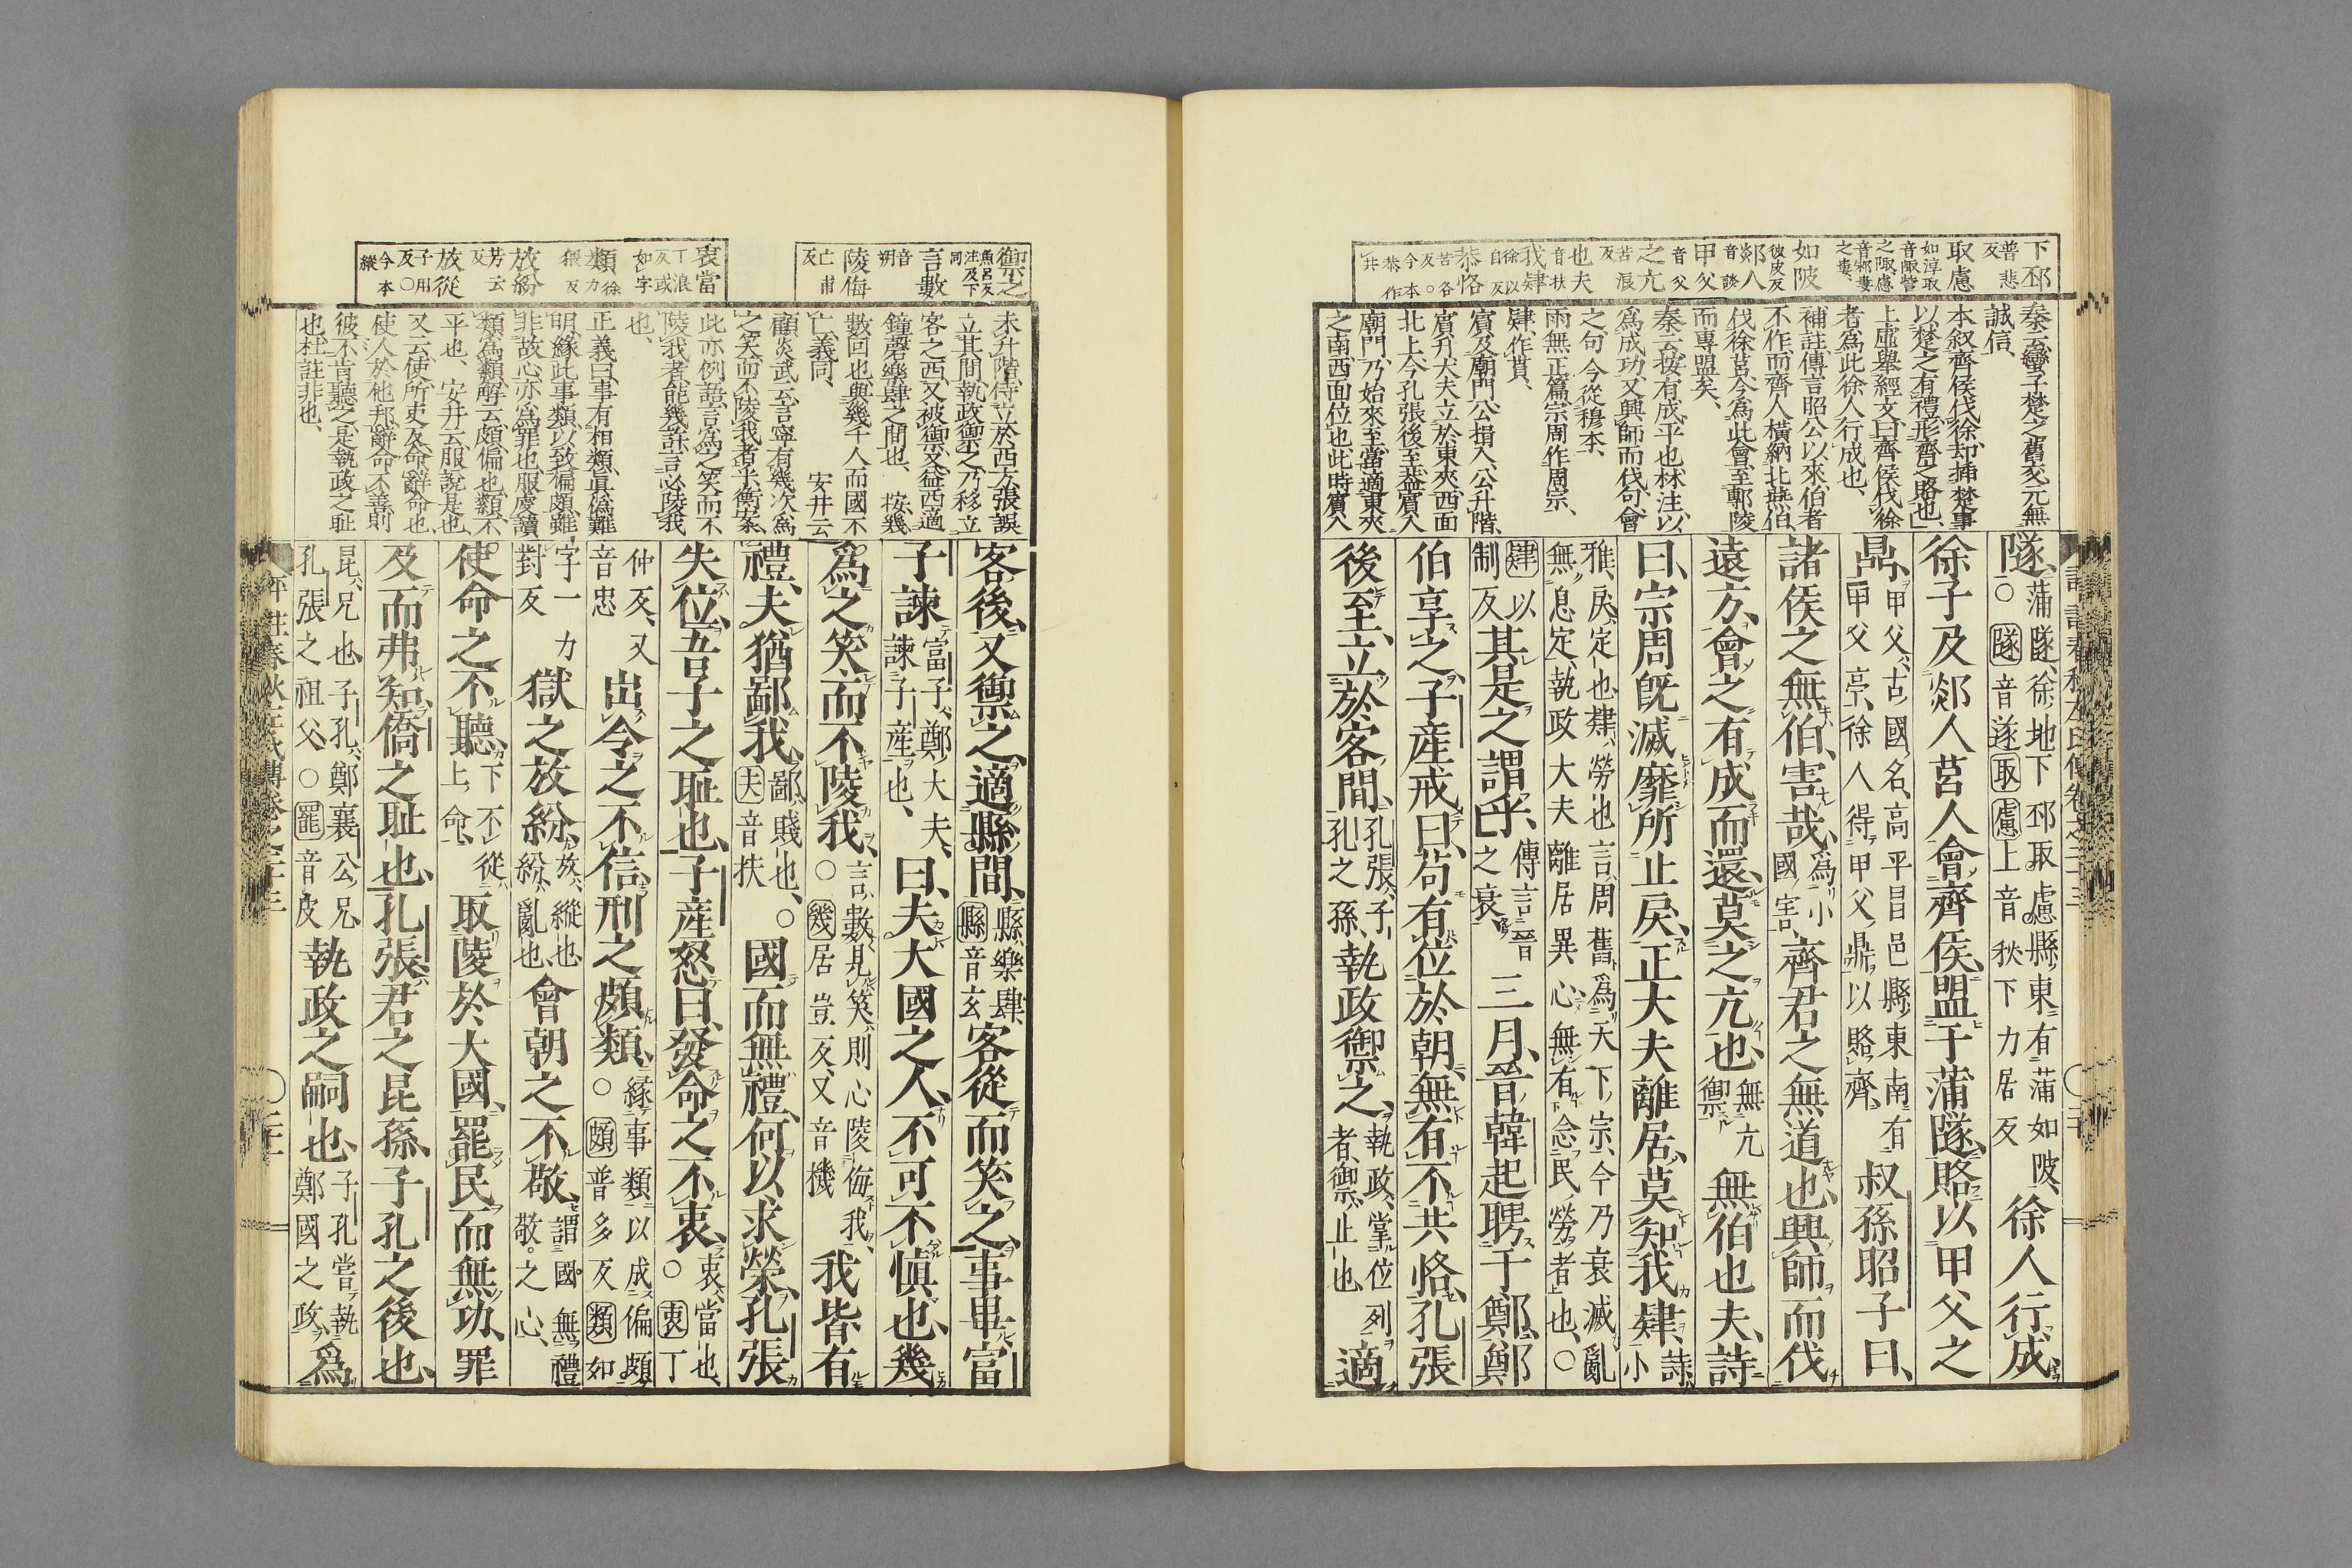 下邳
普悲
反
取慮
如淳取
音陬訾
之陬慮
音邾婁
之婁
如陂
彼皮反
郯人
音談
甲父
音父
之亢
苦浪
反
也夫
音扶
我肄
徐以
自反
恭恪
苦各
反○
今本
恭作
共
秦云蠻子楚之舊交元無
誠信、
本叙齊侯伐徐却插楚事
以楚之有禮形齊之賂也、
上虛舉經文曰齊侯伐徐
者爲此徐人行成也、
補註傳言昭公以來伯者
不作而齊人橫納北燕伯
伐徐莒今爲此會至鄟陵
而專盟矣、
秦云按有成平也林注以
爲成功又興師而伐句會
之句今從穆本、
雨無正篇宗周作周宗、
肄作勩、
賓及廟門公揖入公升階、
賓升大夫立於東夾西面
北上今孔張後至蓋賓入
廟門乃始來至當適東夾
之南西面位也此時賓入
隧、蒲隧、徐地下邳取慮縣東有蒲如陂、
○隧音遂取慮上音秋下力居反
徐人行成
徐子及郯人莒人會齊侯盟于蒲隧賂以甲父之
鼎、甲父古國名高平昌邑縣東南有
甲父亭徐人得甲父鼎以賂齊
叔孫昭子曰、
諸侯之無伯、害哉、爲小
國害
齊君之無道也、興師而伐
遠方、會之有成而還莫之亢也、無亢
禦
無伯也夫、詩
曰、宗周旣滅靡所止戾、正大夫離居、莫知我肄、詩小
雅戾定也肄勞也言周舊爲天下宗今乃衰滅亂
無息定執政大夫離居異心無有念民勞者也、○
肄以
制反
其是之謂乎、傳言晉
之衰
三月晉韓起聘于鄭、鄭
伯享之、子產戒曰、苟有位於朝、無有不共恪、孔張
後至、立於客間、孔張子
孔之孫
執政禦之、執政掌位列
者禦止也
適
禦之
魚呂反
注及下
同
言數
音
朔
陵侮
亡甫
反
衷當
丁浪
反或
如字
類
徐
力
猥反
放紛
芳云
反
放從
子用
反○
今本
縱
未升階侍立於西方張誤
立其間執政禦之乃移立
客之西又被禦又益西適
鐘磬樂肆之間也、按幾
數回也與幾千人而國不
亡義同、安井云
顧炎武云言寧有幾次爲
之笑而不陵我者乎衡案
此亦例語言爲之笑而不
陵我者能幾許言必陵我
也、
正義曰事有相類眞僞難
明緣此事類以致偏頗雖
非故心亦爲罪也服虔讀
類爲纇解云頗偏也纇不
平也、安井云服說是也
又云使所吏反命辭命也、
使人於他邦辭命不善則
彼不肯聽之是執政之耻
也杜註非也、
客後又禦之、適縣間、縣樂肆
縣音玄
客從而笑之、事畢富
子諫富子鄭大夫、
諫子產也、
曰、夫大國之人、不可不愼也、幾
爲之笑、而不陵我、言數見笑則心陵侮我、
○幾居豈反又音機
我皆有
禮、夫猶鄙我、鄙賤也、○
夫音扶
國而無禮、何以求榮、孔張
失位、吾子之耻也、子產怒曰、發命之不衷、衷當也、
○衷丁
仲反、又
音忠
出令之不信、刑之頗類、緣事類以成偏頗
○頗普多反類如
字一力
對反
獄之放紛、放縱也
紛亂也、
會朝之不敬、謂國無禮
敬之心、
使命之不聽、下不從
上命、
取陵於大國、罷民而無功、罪
及而弗知、僑之耻也、孔張、君之昆孫、子孔之後也、
昆兄也子孔鄭襄公兄
孔張之祖父、○罷音皮
執政之嗣也、子孔嘗執
鄭國之政
爲